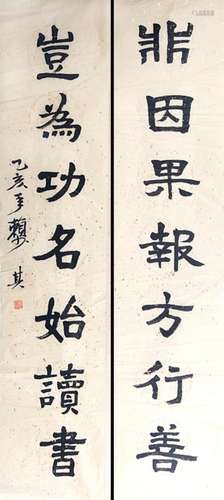 非因果報方行善
豈為功名始讀書
乙亥年賴少其